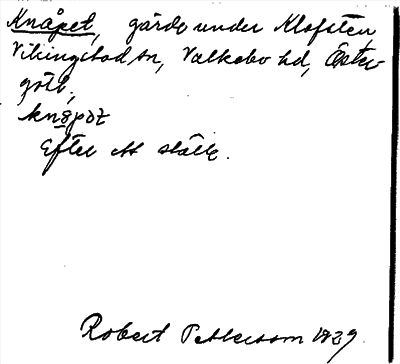 Knåpet, gärde under Klofsten,
Vikingstad sn, Valkebo hd, Öster-
götl.,
knåpət
Efter ett ställe.
Robert Pettersson 1929.